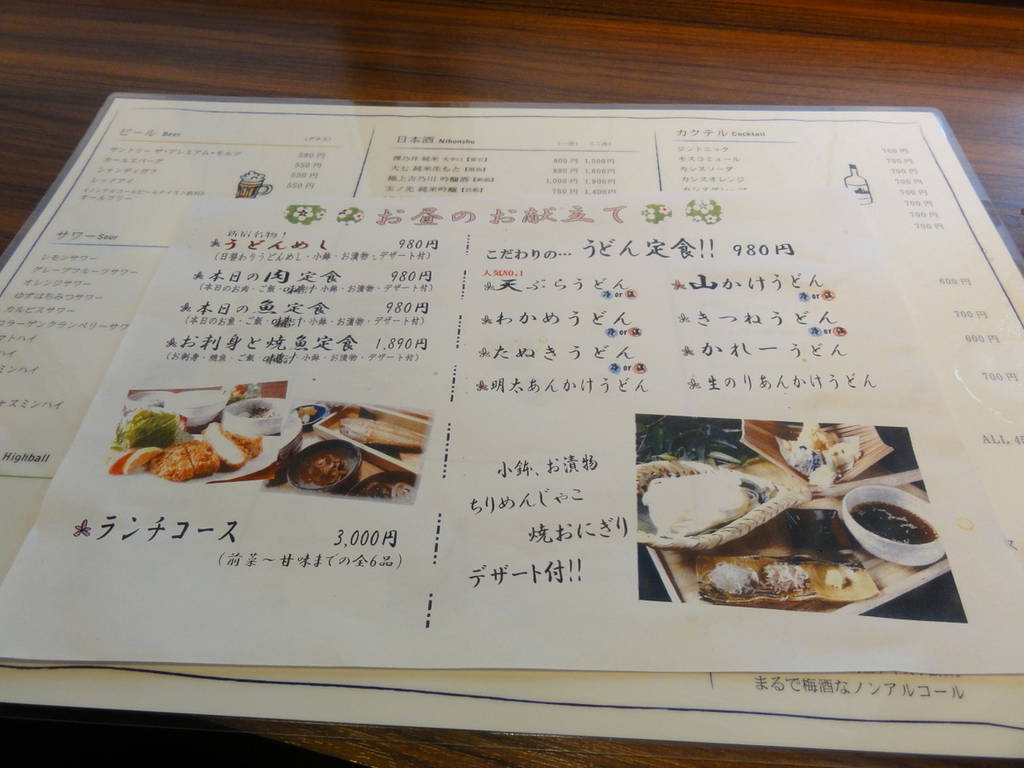 ビール Beer
(グラス)
サントリー ザ・プレミアム・モルツ 580円
カールスバーグ 550円
シャンディガフ 550円
レッドアイ 550円
オールフリー
日本酒 Nihonshu
(一合) (二合)
澤乃井 純米 大辛口 800円 1,500円
大七 純米生もと 880円 1,600円
極上吉乃川 吟醸酒 1,000円 1,900円
玉ノ光 純米吟醸 750円 1,400円
カクテル Cocktail
ジントニック 700円
モスコミュール 700円
カシスソーダ 700円
カシスオレンジ 700円
700円
700円
700円
サワー Sour
レモンサワー
グレープフルーツサワー
オレンジサワー
ゆずはちみつサワー
カルピスサワー
コラーゲンクランベリーサワー
マトハイ
ハイ
ミンハイ
ャスミンハイ
Highball
600円
700円
600円
700円
ALL 45
お昼のお献立て
新宿名物!
うどんめし 980円
(日替わりうどんめし・小鉢・お漬物・デザート付)
本日の肉定食 980円
(本日のお肉・ご飯・味噌汁・小鉢・お漬物・デザート付)
本日の魚定食 980円
(本日のお魚・ご飯・味噌汁・小鉢・お漬物・デザート付)
お刺身と焼魚定食 1,890円
(お刺身・焼魚・ご飯・味噌汁・小鉢・お漬物・デザート付)
ランチコース 3,000円
(前菜～甘味までの全6品)
こだわりの… うどん定食!! 980円
人気NO.1
天ぷらうどん
冷or温
山かけうどん
冷or温
わかめうどん
冷or温
きつねうどん
冷or温
たぬきうどん
冷or温
かれーうどん
明太あんかけうどん
生のりあんかけうどん
小鉢、お漬物
ちりめんじゃこ
焼おにぎり
デザート付!!
まるで梅酒なノンアルコール